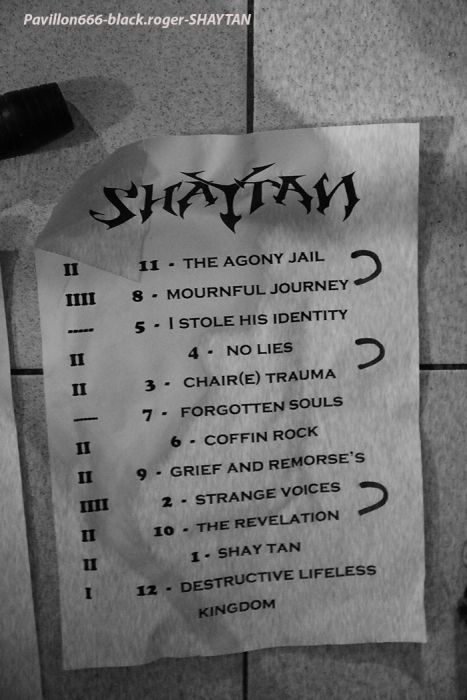 Pavillon666-black.roger-SHAYTAN
SHAYTAN
II 11 - THE AGONY JAIL
IIII 8 - MOURNFUL JOURNEY
----- 5 - I STOLE HIS IDENTITY
II 4 - NO LIES
II 3 - CHAIR(E) TRAUMA
----- 7 - FORGOTTEN SOULS
II 6 - COFFIN ROCK
II 9 - GRIEF AND REMORSE'S
IIII 2 - STRANGE VOICES
II 10 - THE REVELATION
II 1 - SHAY TAN
I 12 - DESTRUCTIVE LIFELESS
KINGDOM